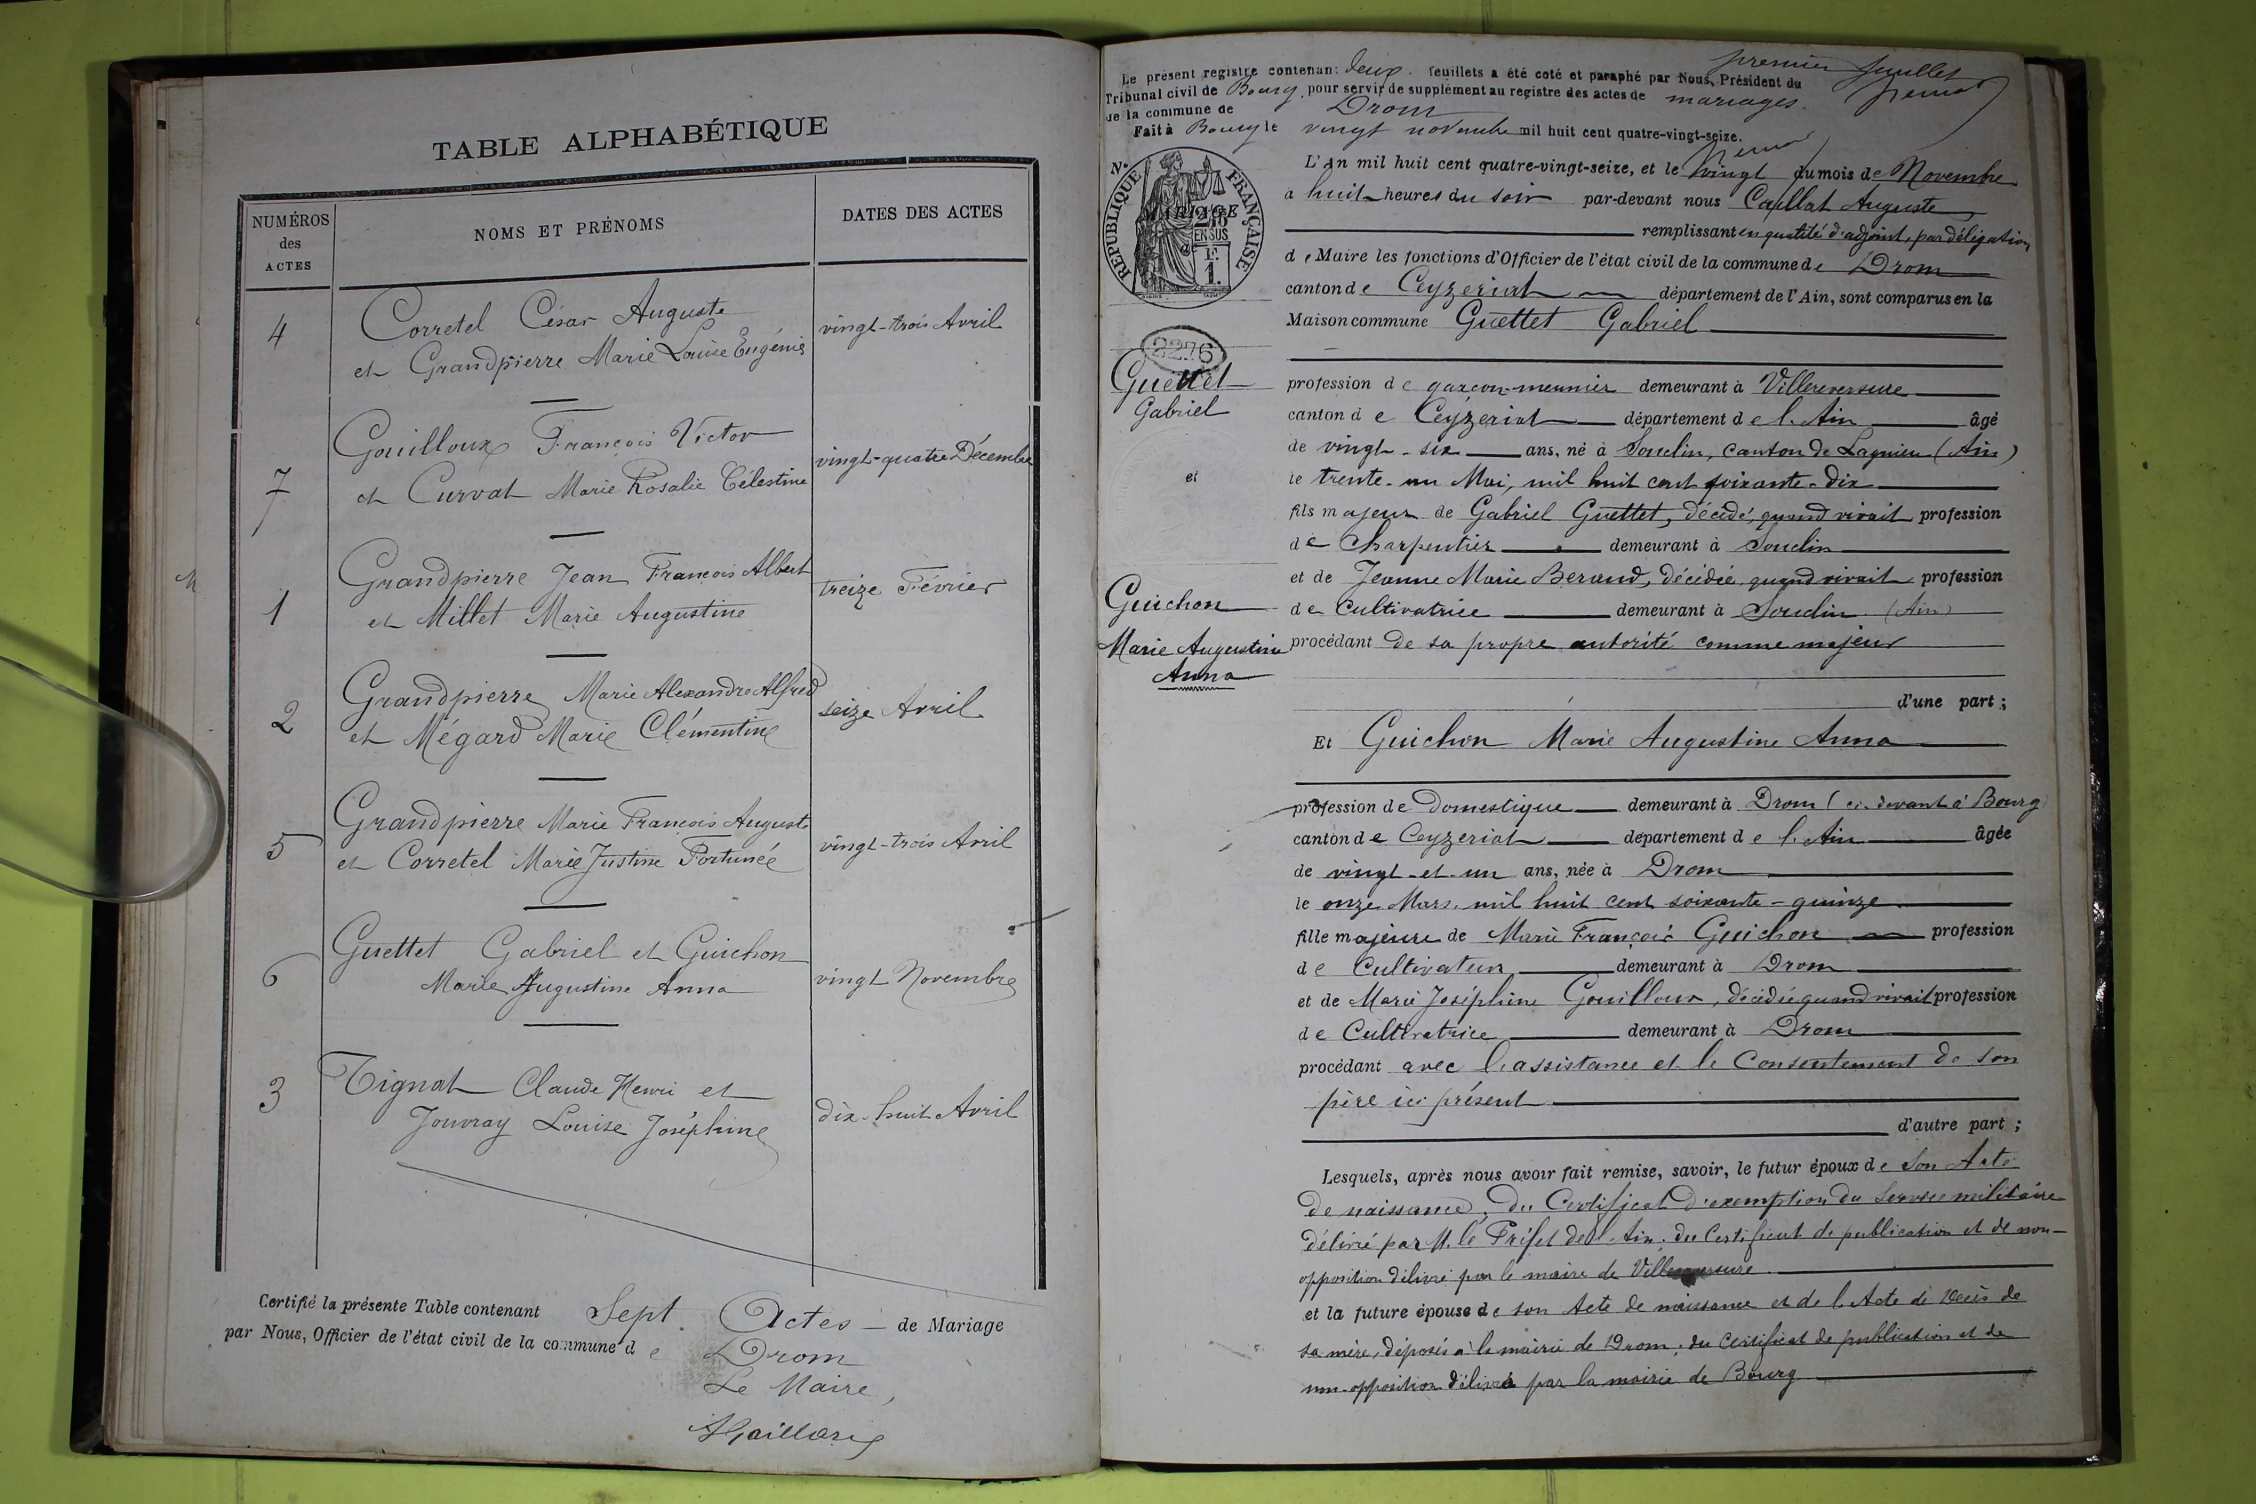 TABLE ALPHABÉTIQUE
NUMÉROS des ACTES
NOMS ET PRÉNOMS
DATES DES ACTES
4 Corretel César Auguste
et Grandpierre Marie Louise Eugénie
vingt-trois Avril
7 Gouilloux François Victor
et Curvat Marie Rosalie Célestine
vingt-quatre Décembre
1 Grandpierre Jean François Albert
et Millet Marie Augustine
treize Février
2 Grandpierre Marie Alexandre Alfred
et Mégard Marie Clémentine
seize Avril
5 Grandpierre Marie François Auguste
et Corretel Marie Justine Fortunée
vingt-trois Avril
6 Guettet Gabriel et Guichon
Marie Augustine Anna
vingt Novembre
3 Tignat Claude Henri et
Jouvray Louise Joséphine
dix-huit Avril
Certifié la présente Table contenant Sept Actes de Mariage
par Nous, Officier de l'état civil de la commune de Drom
Le Maire,
premier feuillet
Le présent registre contenant deux feuillets a été coté et paraphé par Nous, Président du
Tribunal civil de Bourg, pour servir de supplément au registre des actes de mariages
de la commune de Drom
Fait à Bourg le vingt novembre mil huit cent quatre-vingt-seize.
L'An mil huit cent quatre-vingt-seize, et le vingt du mois de Novembre
à huit heures du soir par-devant nous Caillat Auguste
remplissant en qualité d'adjoint, par délégation
de Maire les fonctions d'Officier de l'état civil de la commune de Drom
canton de Ceyzeriat département de l'Ain, sont comparus en la
Maison commune Guettet Gabriel
No
RÉPUBLIQUE FRANÇAISE
MARIAGE
EN SUS
2276
Guettet
Gabriel
et
Guichon
Marie Augustine
Anna
profession de garçon-meunier demeurant à Villereversure
canton de Ceyzeriat département de l'Ain âgé
de vingt-six ans, né à Souclin, canton de Lagnieu (Ain)
le trente-un Mai, mil huit cent soixante-dix
fils majeur de Gabriel Guettet, décédé, quand vivait profession
de Charpentier demeurant à Souclin
et de Jeanne Marie Beraud, décédée quand vivait profession
de Cultivatrice demeurant à Souclin (Ain)
procédant de sa propre autorité comme majeur
d'une part ;
Et Guichon Marie Augustine Anna
profession de Domestique demeurant à Drom (ci-devant à Bourg)
canton de Ceyzeriat département de l'Ain âgée
de vingt-et-un ans, née à Drom
le onze Mars, mil huit cent soixante-quinze
fille majeure de Marie François Guichon profession
de Cultivateur demeurant à Drom
et de Marie Joséphine Gouilloux, décédée quand vivait profession
de Cultivatrice demeurant à Drom
procédant avec l'assistance et le Consentement de son
père ici présent
d'autre part ;
Lesquels, après nous avoir fait remise, savoir, le futur époux de son Acte
de naissance, du Certificat d'exemption du service militaire
délivré par M. le Préfet de l'Ain, du Certificat de publication et de non-
opposition délivré par le maire de Villereversure
et la future épouse de son Acte de naissance et de l'Acte de Décès de
sa mère, déposés à la mairie de Drom, du Certificat de publication et de
non-opposition délivré par la mairie de Bourg